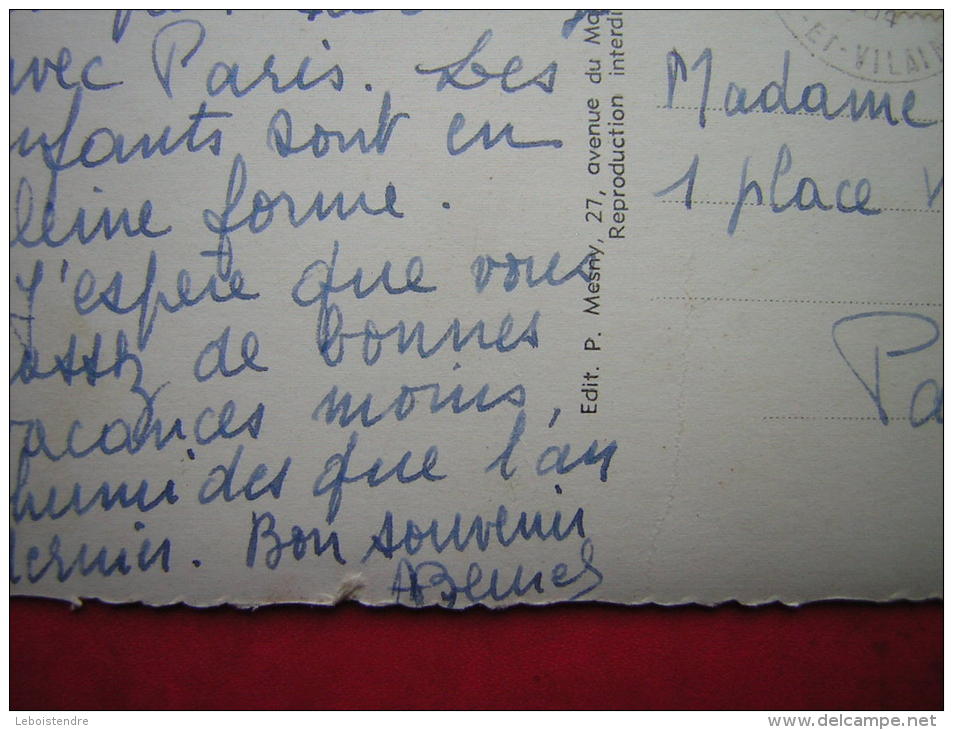 avec Paris. Les
nfants sont en
leine forme.
J'espère que vous
assez de bonnes
vacances moins,
humides que l'an
dernier. Bon souvenir
Edit. P. Mesny, 27, avenue du Ma
Reproduction interdi
ET-VILAI
Madame
1 place V
Pa
Leboistendre
www.delcampe.net